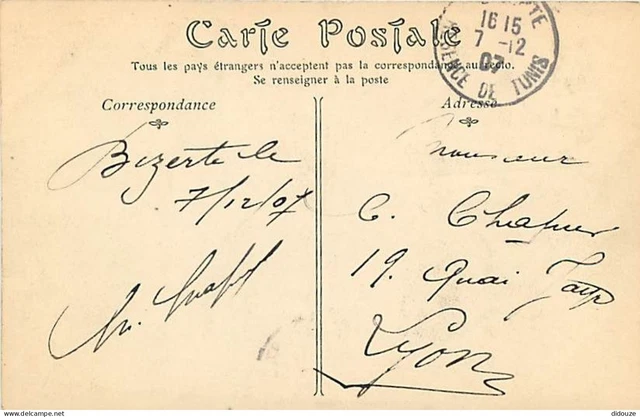 Carte Postale
Tous les pays étrangers n'acceptent pas la correspondance au recto.
Se renseigner à la poste
16 15
7 -12
07
RÉGENCE DE TUNIS
Correspondance
Adresse
Bizerte le
7/12/07
Monsieur
C.
19. Quai
Lyon
delcampe.net
didouze